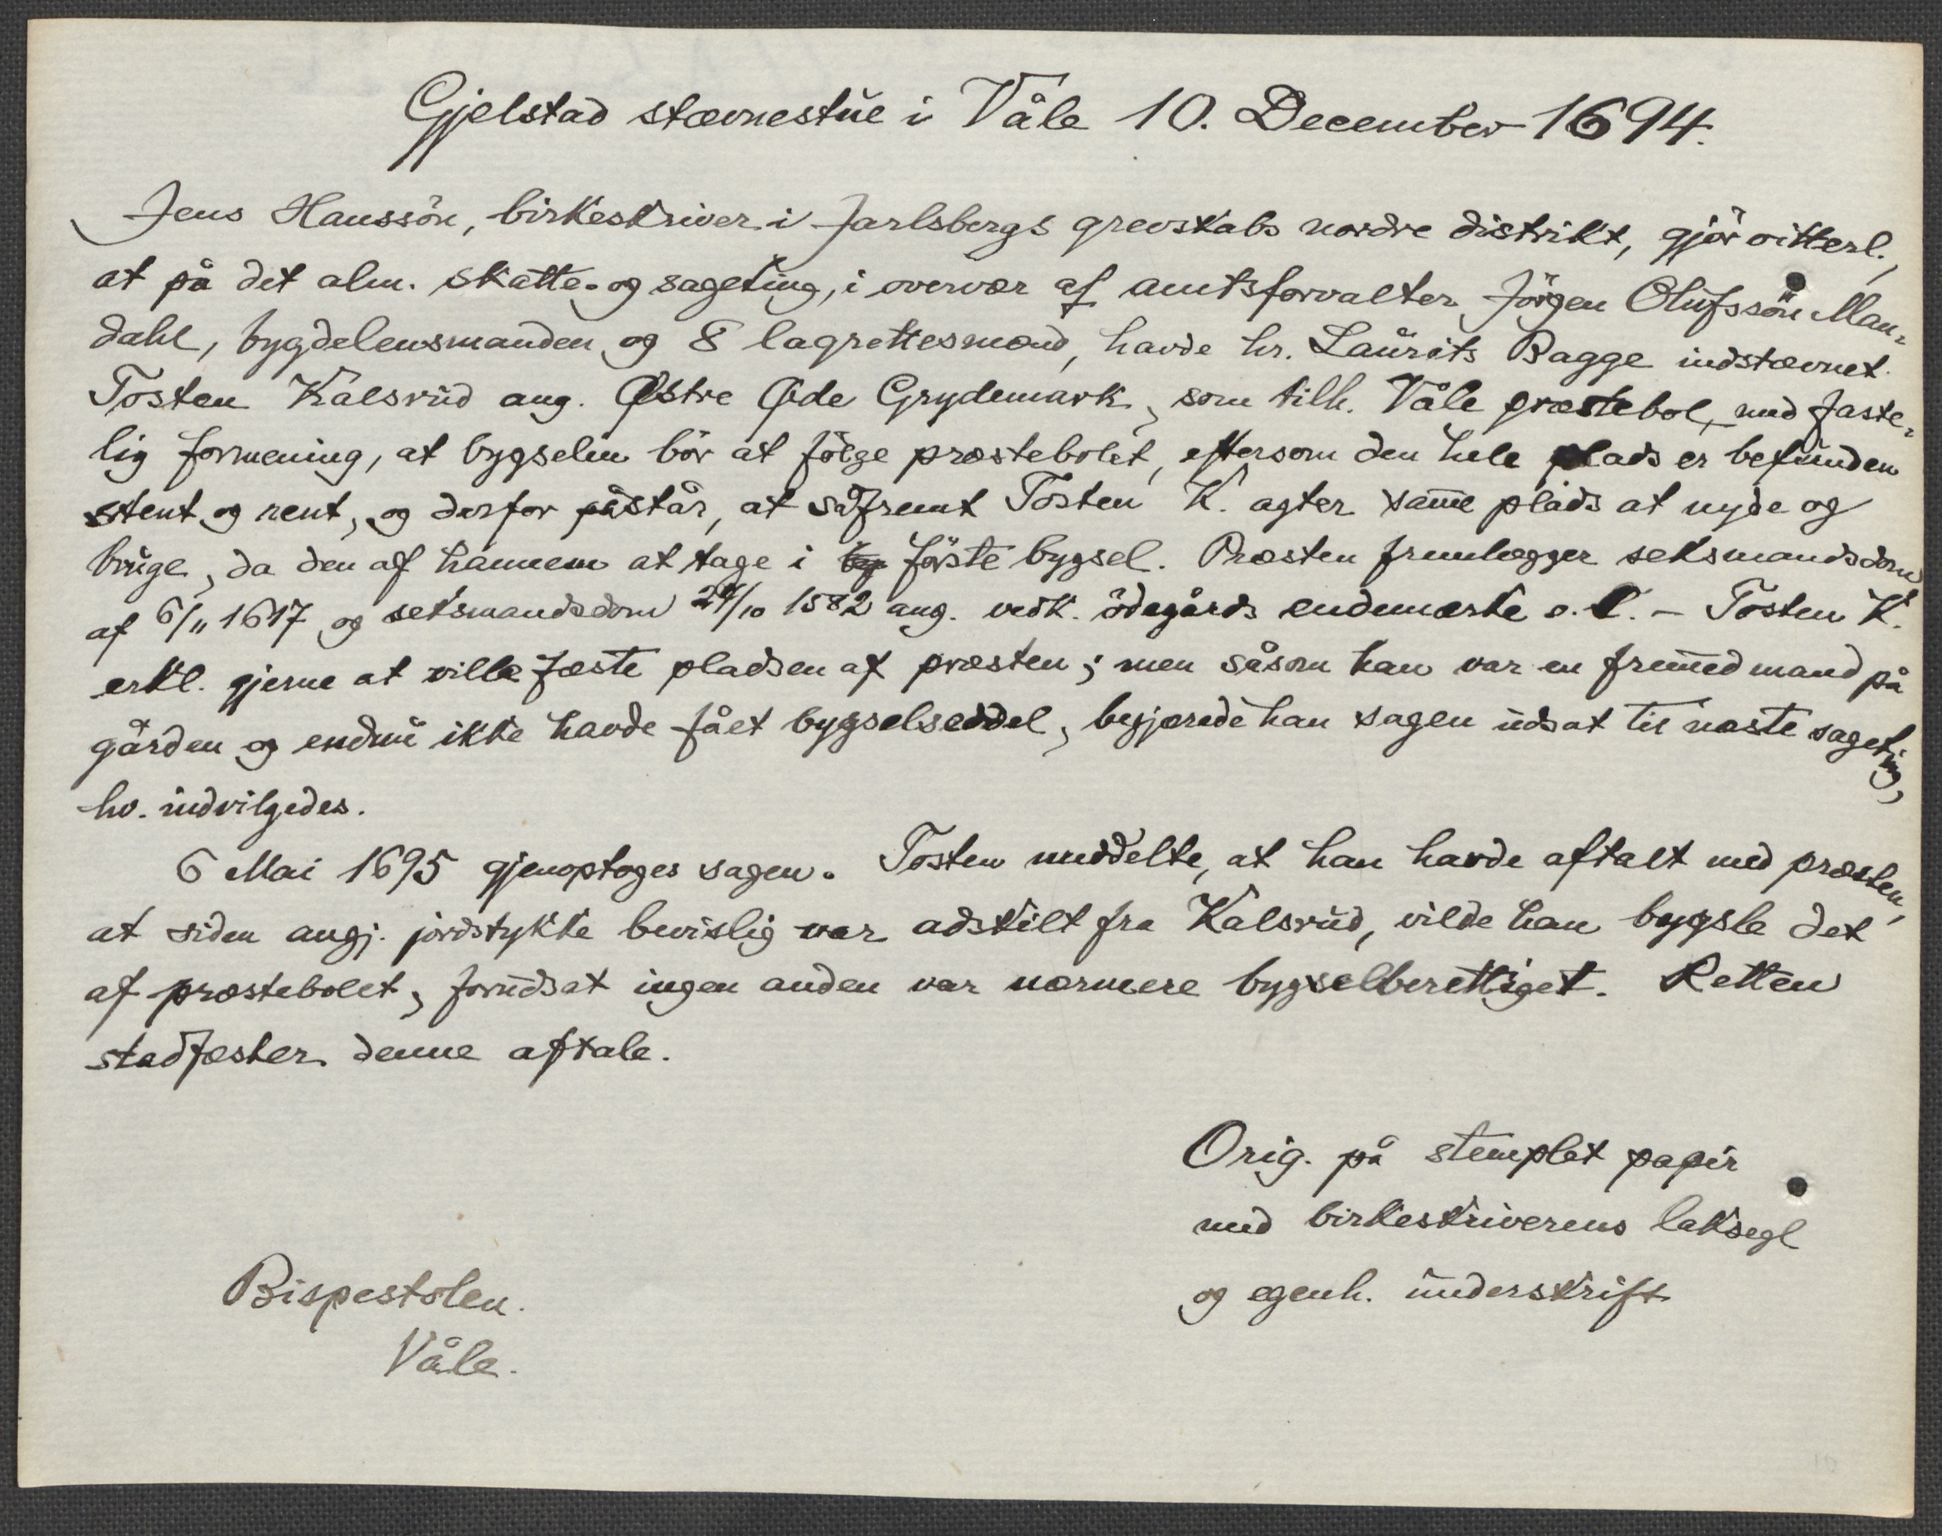 Gjelstad stævnestue i Våle 10. December 1694.
Jens Hanssön, birkeskriver i Jarlsbergs grevskabs nordre distrikt, gjör vitterl.,
at på det alm. skatte- og sageting, i overvær af amtsforvalter Jörgen Olufssön Man-
dahl, bygdelensmanden og 8 lagrettesmænd, havde hr. Laurits Bagge indstævnet
Tosten Kalsrud ang. Østre Øde Grydemark, som tilh. Våle præstebol, med faste-
lig formening, at bygselen bör at fölge præstebolet, eftersom den hele plads er befunden
stent og rent, og derfor påstår, at såfremt Tosten K. agter samme plads at nyde og
bruge, da den af hannem at tage i förste bygsel. Præsten fremlægger seksmandsdom
af 6/11 1617 og seksmandsdom 24/10 1582 ang. vedk. ödegårds endemærke o. l. – Tosten K.
erkl. gjerne at ville fæste pladsen af præsten; men såsom han var en fremmed mand på
gården og endnu ikke havde fået bygselseddel, begjærede han sagen udsat til næste sageting,
hv. indvilgedes.
6 Mai 1695 gjenoptoges sagen. Tosten meddelte, at han havde aftalt med præsten,
at siden angj. jordstykke bevislig var adskilt fra Kalsrud, vilde han bygsle det
af præstebolet, forudsat ingen anden var nærmere bygselberettiget. Retten
stadfæster denne aftale.
Orig. på stemplet papir
med birkeskriverens laksegl
og egenh. underskrift
Bispestolen.
Våle.